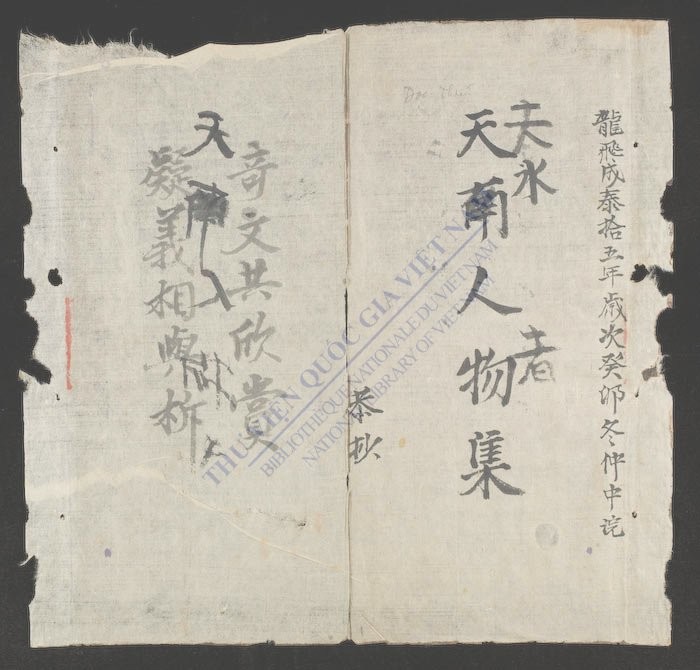 龍飛成泰拾五年歲次癸卯冬仲中浣
水
者
天南人物集
恭抄
奇文共欣賞
疑義相與析
天南人
THƯ VIỆN QUỐC GIA VIỆT NAM
BIBLIOTHÈQUE NATIONALE DU VIETNAM
NATIONAL LIBRARY OF VIETNAM